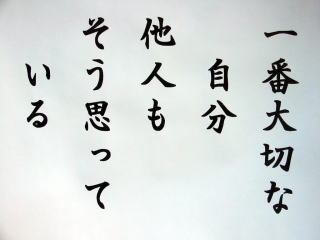 一番大切な
自分
他人も
そう思って
いる